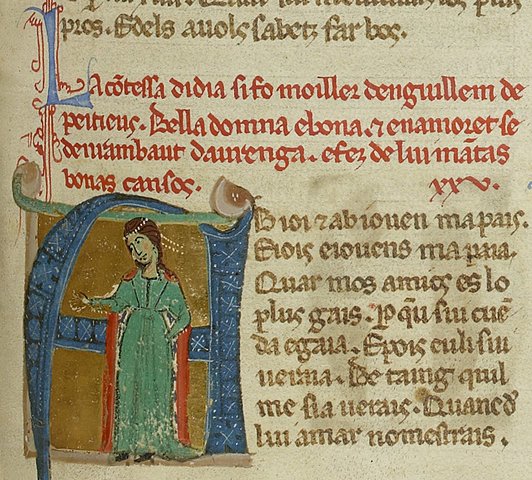 pros. Edels auols sabetz far bos.
La cõtessa didia si fo moiller denguillem de
peitieus. Bella domna ebona. ⁊ enamoret se
denrambaut daurenga. efez de lui mãtas
bonas cansos. xxv.
AB ioi ⁊ ab iouen ma pais.
Eiois eiouens ma paia.
Quar mos amics es lo
plus gais. P qũ sui cuẽ
da egaia. Epois euli sui
ueraia. Be taing quil
me sia uerais. Quanc d̃
lui amar nomestrais.